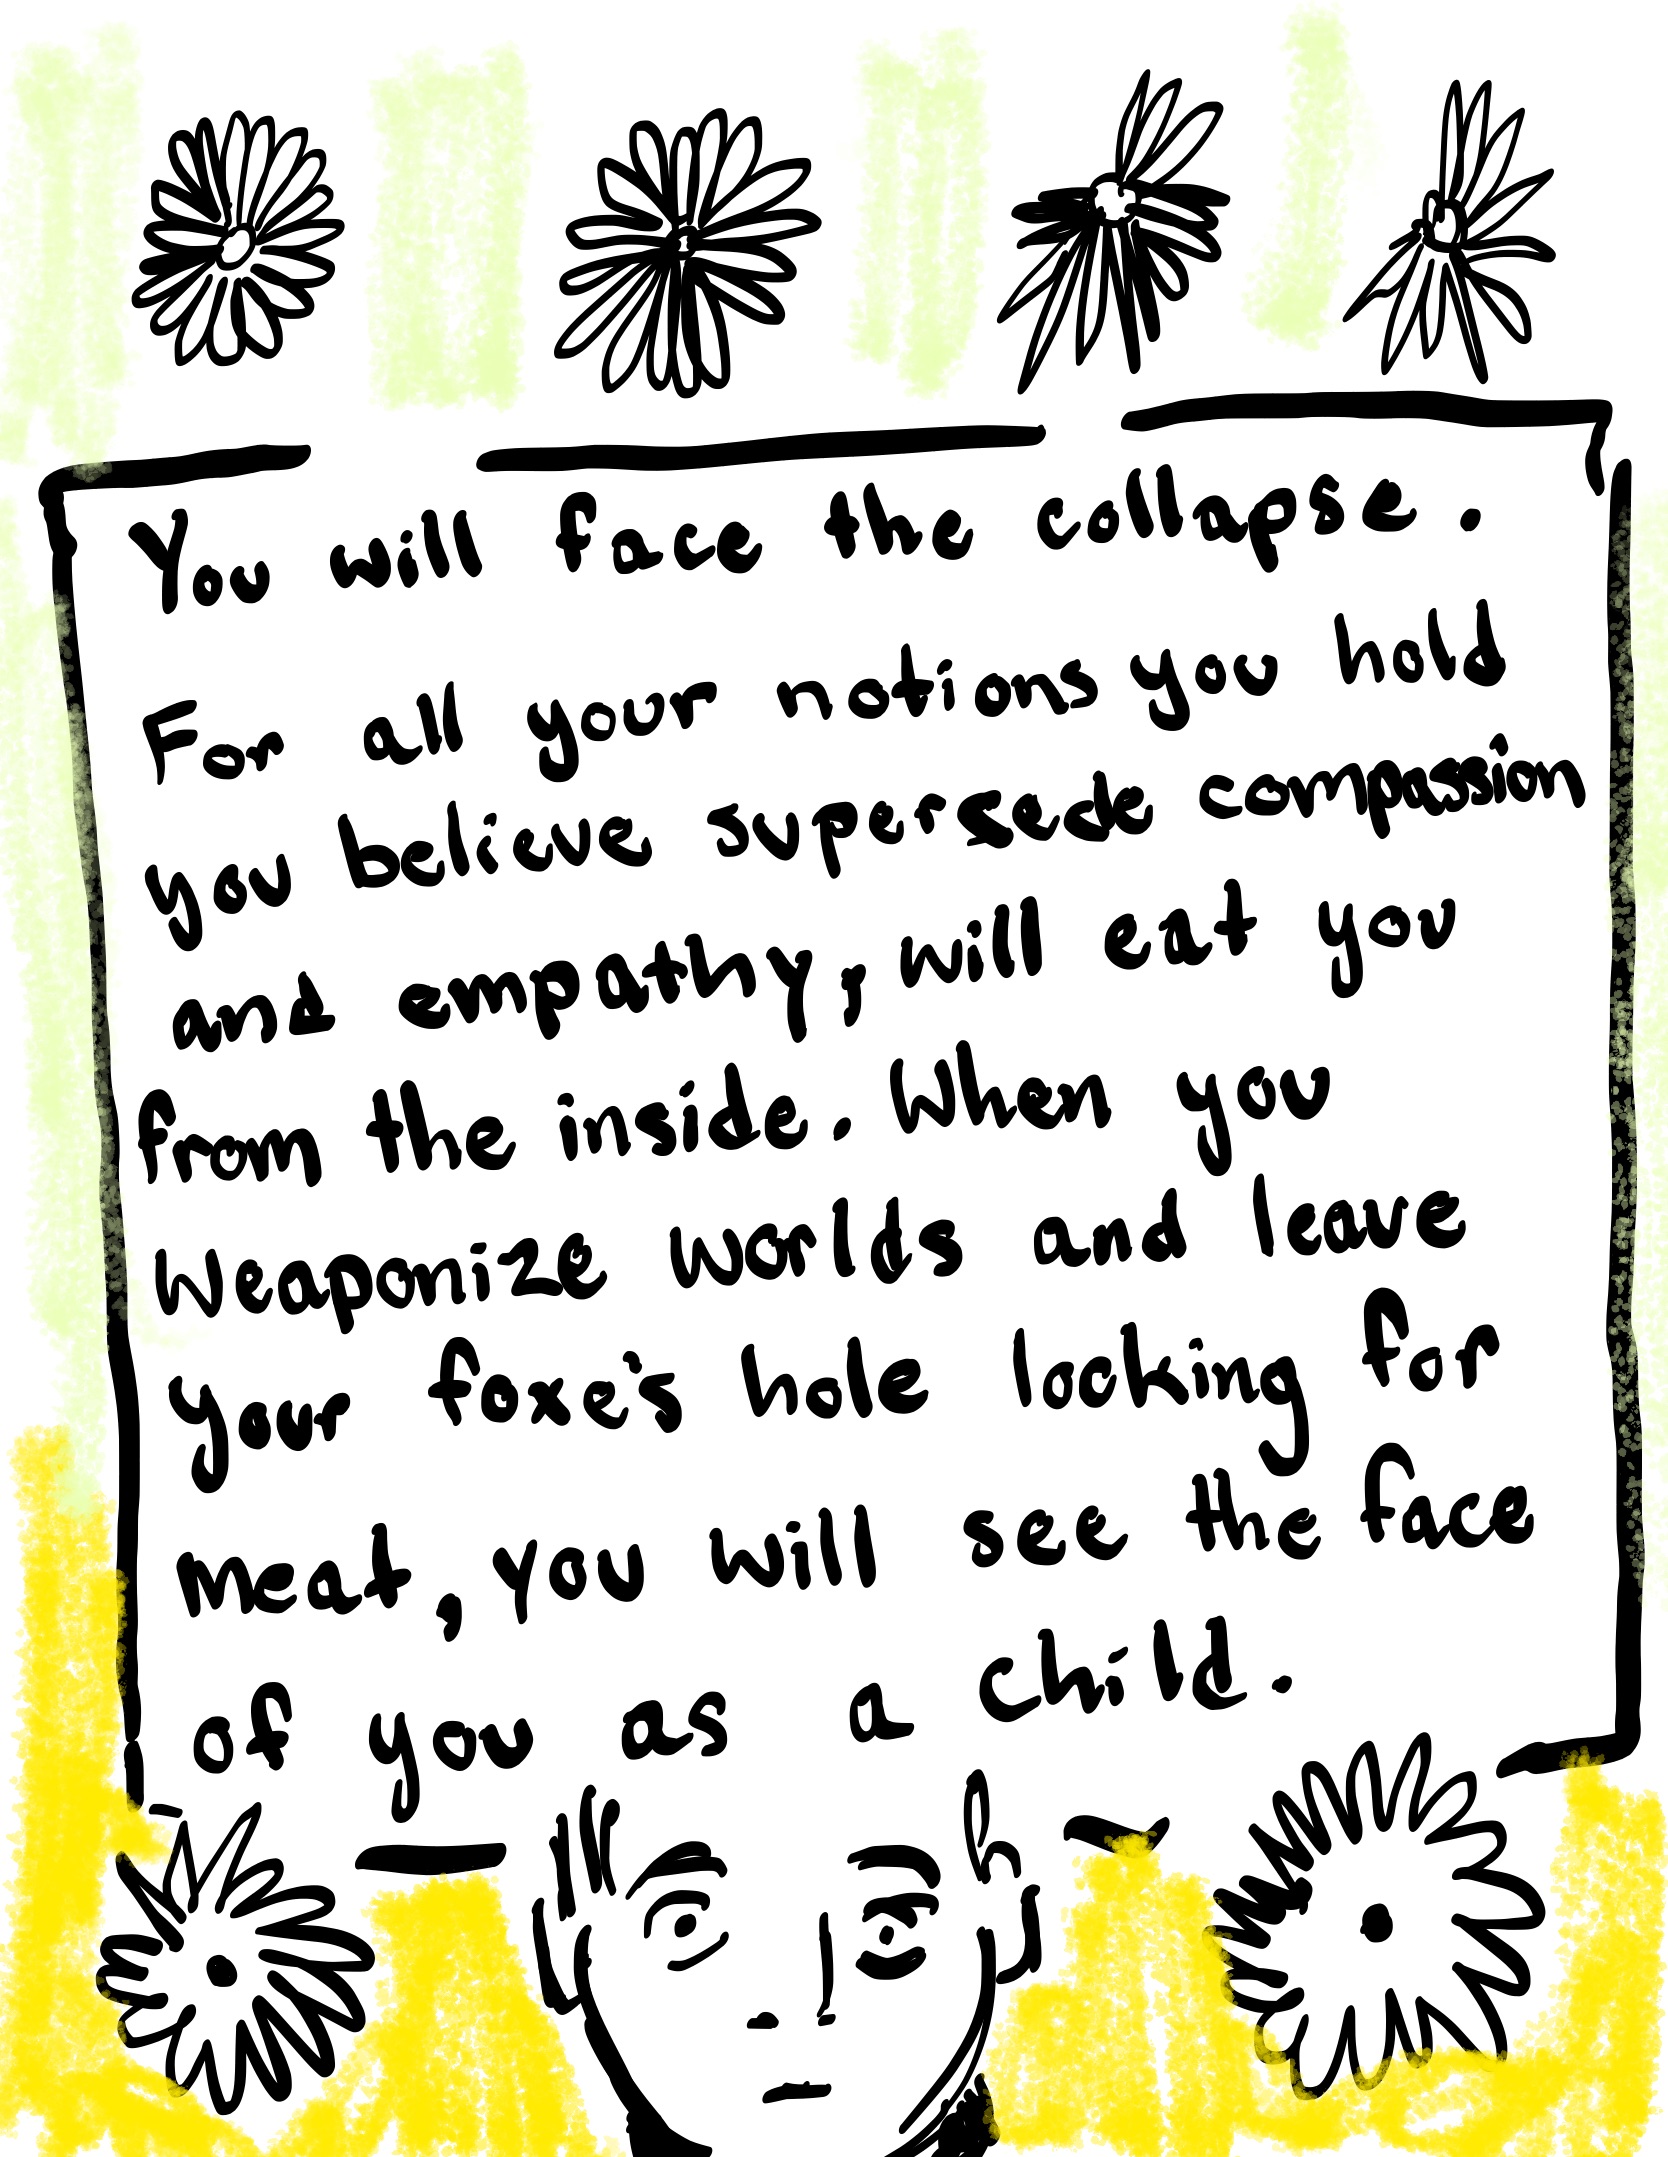 You will face the collapse.
For all your notions you hold
you believe supersede compassion
and empathy, will eat you
from the inside. When you
Weaponize worlds and leave
your foxe's hole looking for
meat, you will see the face
of you as a child.